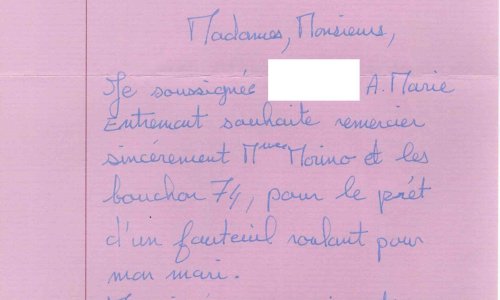 Madames, Monsieurs,
Je soussignée A. Marie
Entremont souhaite remercier
sincèrement Mme Morino et les
bouchon 74, pour le prêt
d'un fauteuil roulant pour
mon mari.